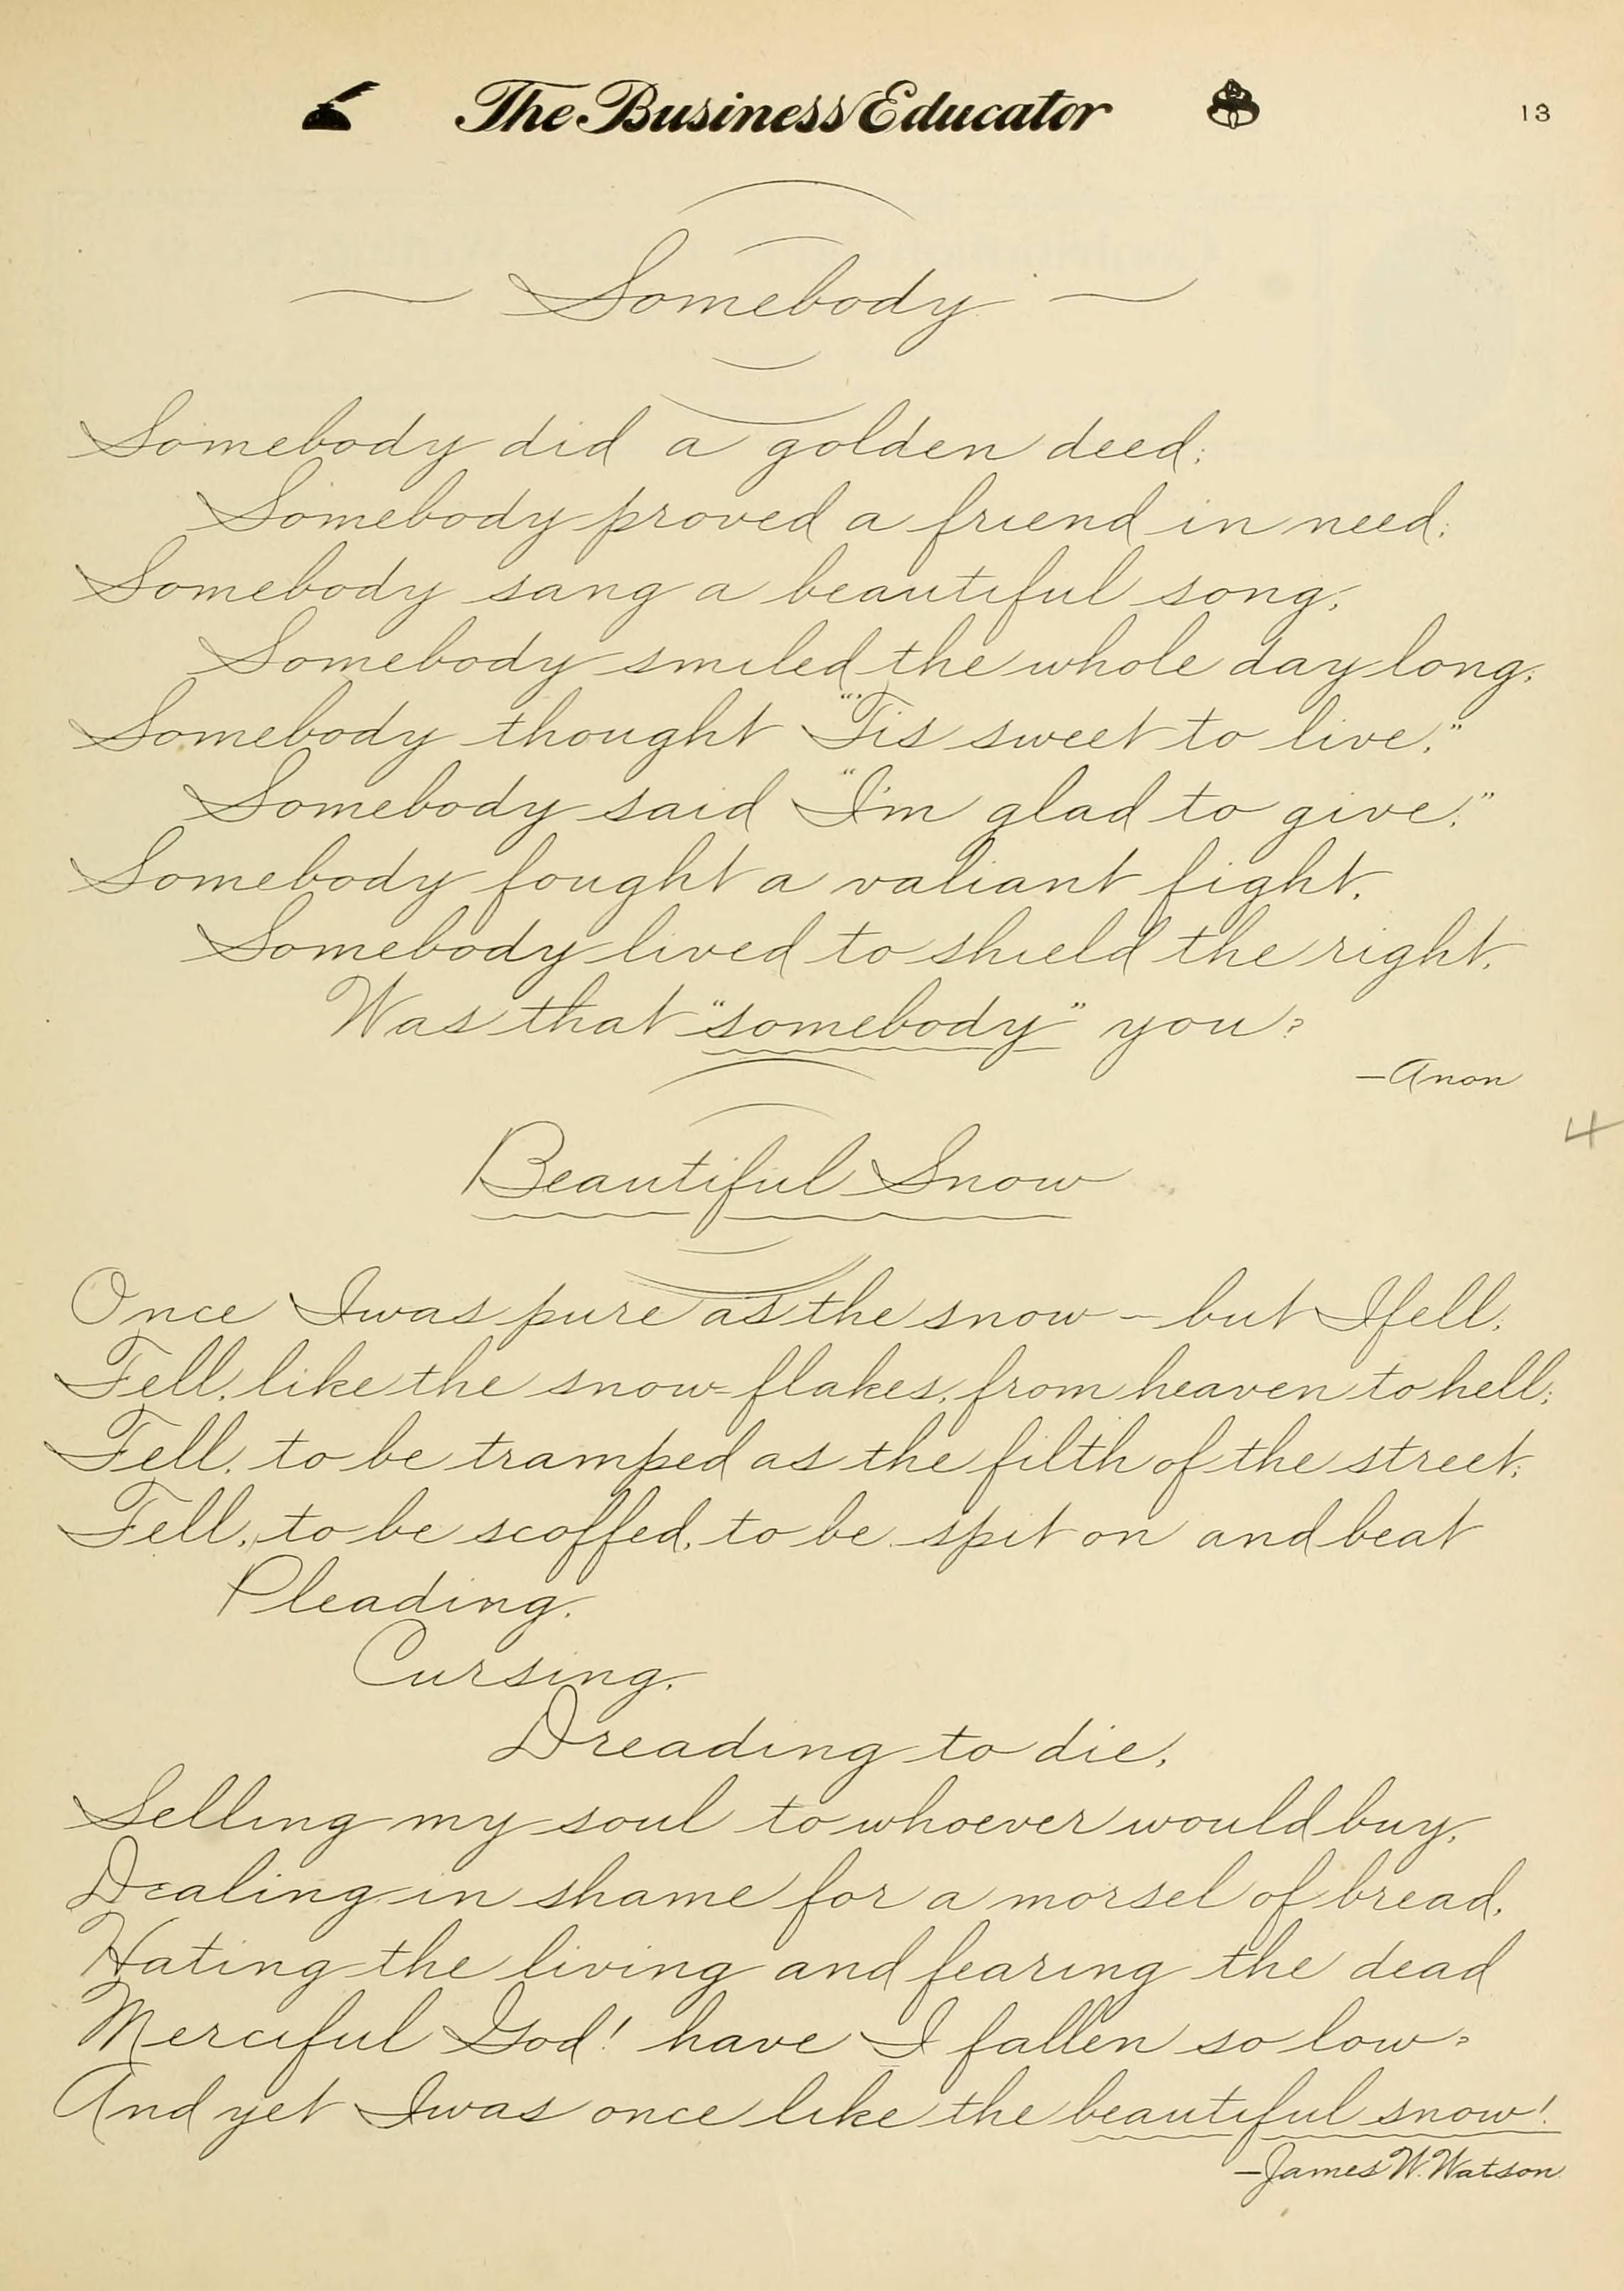 The Business Educator
13
Somebody
Somebody did a golden deed;
Somebody proved a friend in need;
Somebody sang a beautiful song;
Somebody smiled the whole day long;
Somebody thought "'Tis sweet to live;"
Somebody said "I'm glad to give;"
Somebody fought a valiant fight,
Somebody lived to shield the right,
Was that "somebody" you?
—Anon
4
Beautiful Snow
Once I was pure as the snow – but I fell;
Fell, like the snow=flakes, from heaven to hell;
Fell, to be tramped as the filth of the street;
Fell, to be scoffed, to be spit on and beat
Pleading,
Cursing,
Dreading to die,
Selling my soul to whoever would buy,
Dealing in shame for a morsel of bread,
Hating the living and fearing the dead
Merciful God! have I fallen so low?
And yet I was once like the beautiful snow!
—James W. Watson